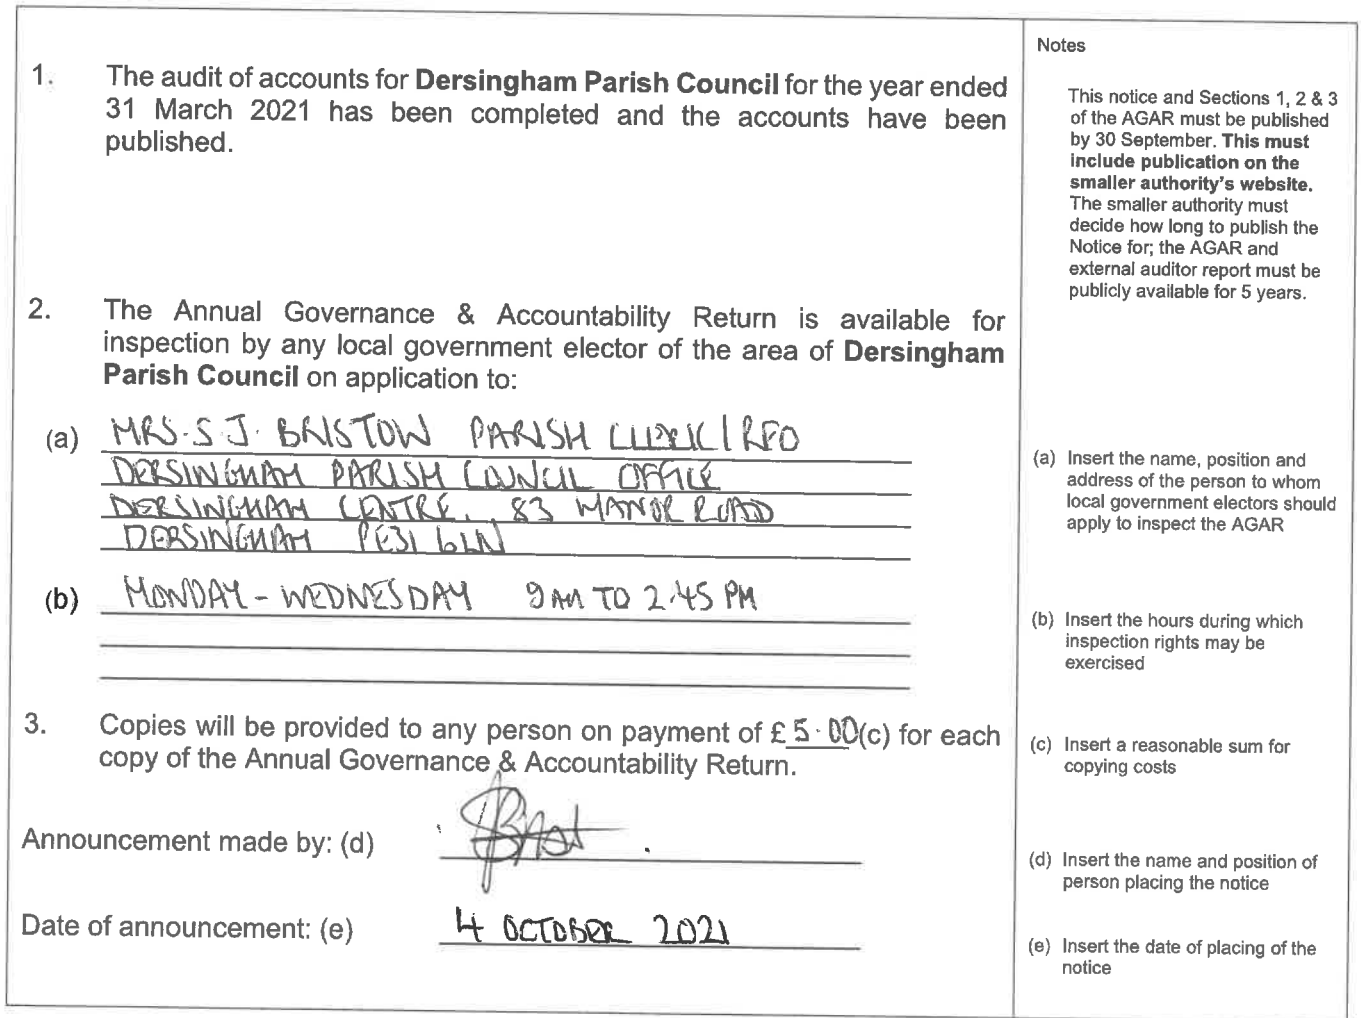 1. The audit of accounts for Dersingham Parish Council for the year ended
31 March 2021 has been completed and the accounts have been
published.
2. The Annual Governance & Accountability Return is available for
inspection by any local government elector of the area of Dersingham
Parish Council on application to:
(a) MRS. S J. BRISTOW PARISH CLERK / RFO
DERSINGHAM PARISH COUNCIL OFFICE
DERSINGHAM CENTRE, 83 MANOR ROAD
DERSINGHAM PE31 6LN
(b) MONDAY - WEDNESDAY 9 AM TO 2.45 PM
3. Copies will be provided to any person on payment of £5.00(c) for each
copy of the Annual Governance & Accountability Return.
Announcement made by: (d)
Date of announcement: (e) 4 OCTOBER 2021
Notes
This notice and Sections 1, 2 & 3
of the AGAR must be published
by 30 September. This must
include publication on the
smaller authority's website.
The smaller authority must
decide how long to publish the
Notice for; the AGAR and
external auditor report must be
publicly available for 5 years.
(a) Insert the name, position and
address of the person to whom
local government electors should
apply to inspect the AGAR
(b) Insert the hours during which
inspection rights may be
exercised
(c) Insert a reasonable sum for
copying costs
(d) Insert the name and position of
person placing the notice
(e) Insert the date of placing of the
notice